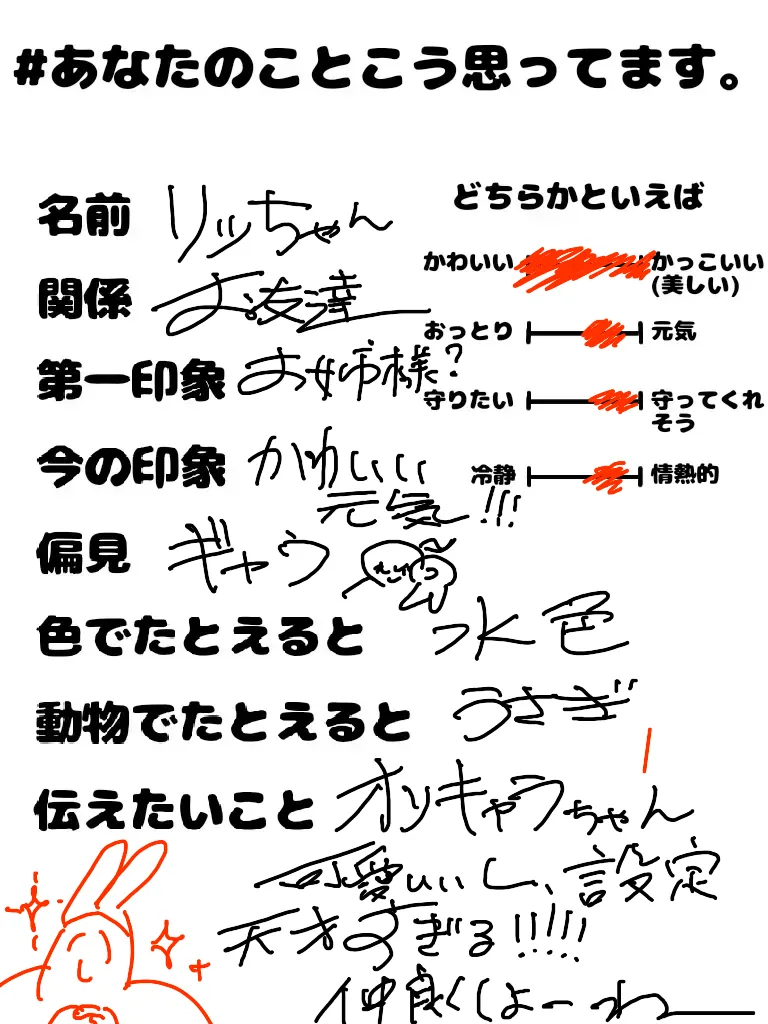 #あなたのことこう思ってます。
名前 リッちゃん
関係 お友達
第一印象 お姉様?
今の印象 かわいい
元気!!!
偏見 ギャウ
色でたとえると 水色
動物でたとえると うさぎ
伝えたいこと オリキャラちゃん
可愛いいし、設定
天才すぎる!!!!!
仲良くしよーねー
どちらかといえば
かわいい かっこいい
(美しい)
おっとり 元気
守りたい 守ってくれ
そう
冷静 情熱的